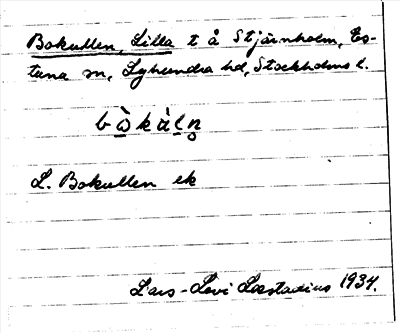 Bokullen, Lilla t å Stjärnholm, Es-
tuna sn, Lyhundra hd, Stockholms l.
bò̱kàl̥n̥
L. Bokullen ek
Lars-Levi Læstadius 1934.